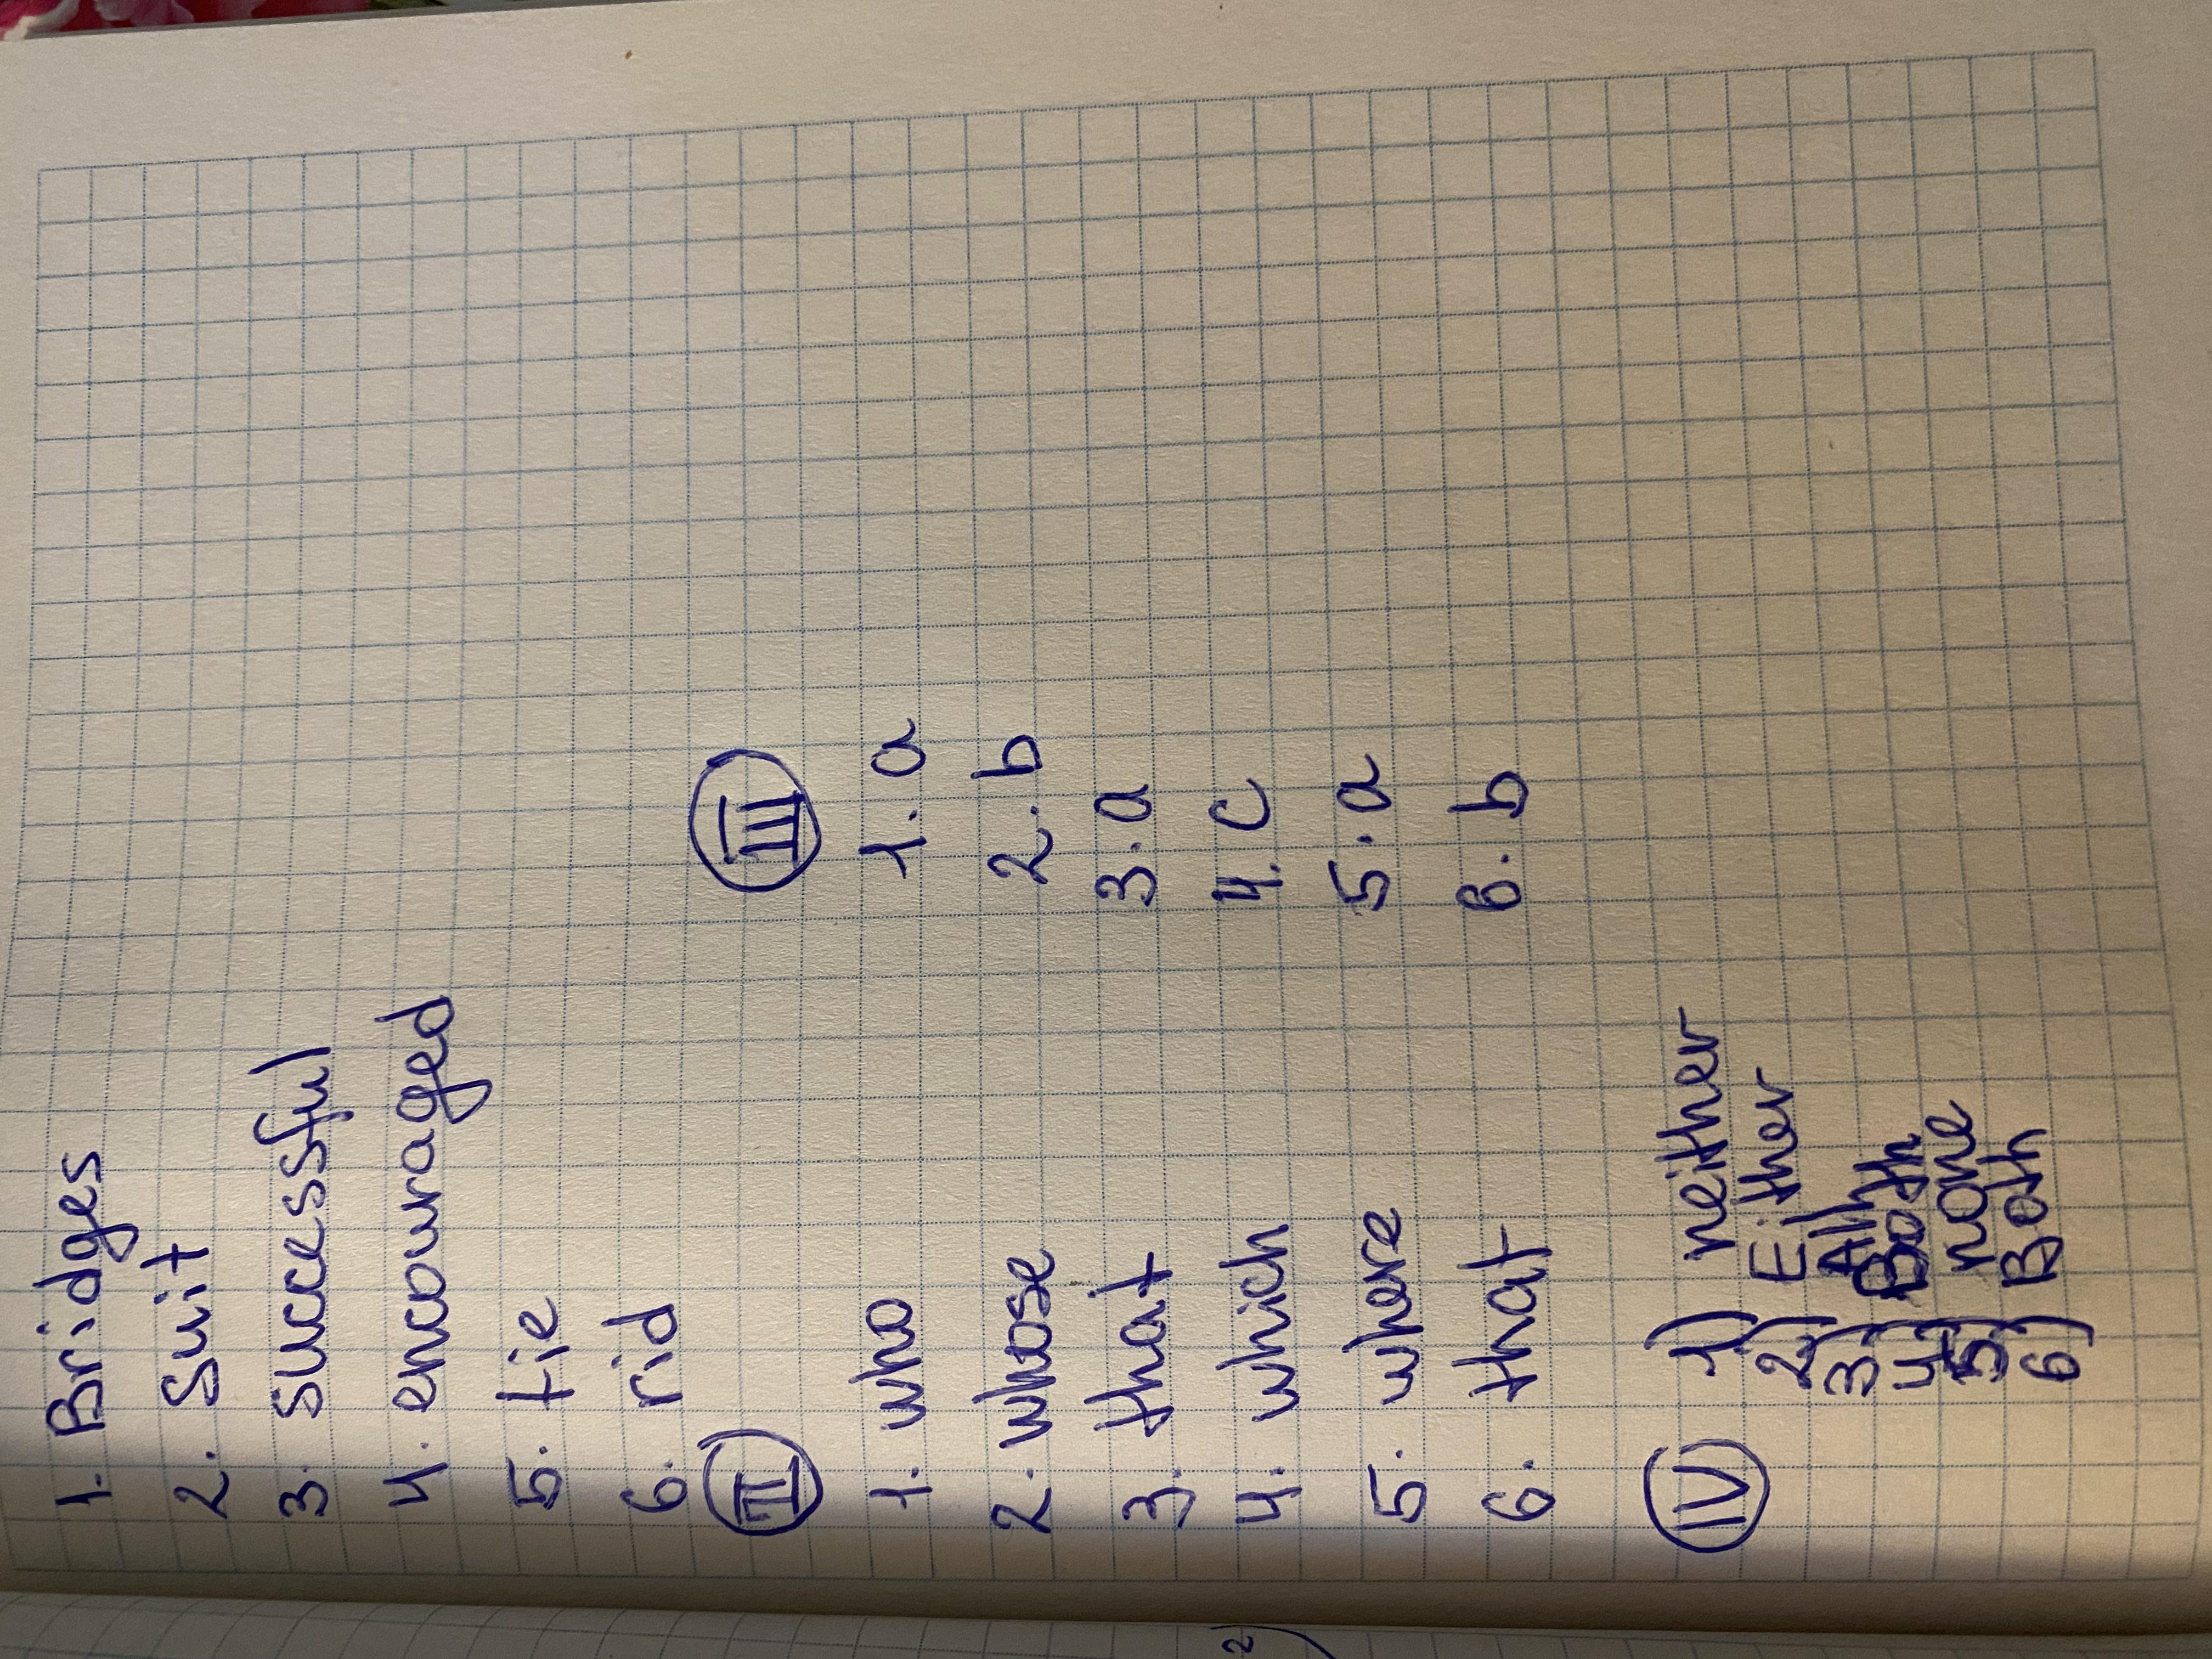 1. Bridges
2. Suit
3. successful
4. encouraged
5. tie
6. rid
II
1. who
2. whose
3. that
4. which
5. where
6. that
III
1. a
2. b
3. a
4. c
5. a
6. b
IV
1) neither
2) Either
3) All
4) Both
5) none
6) Both
2)